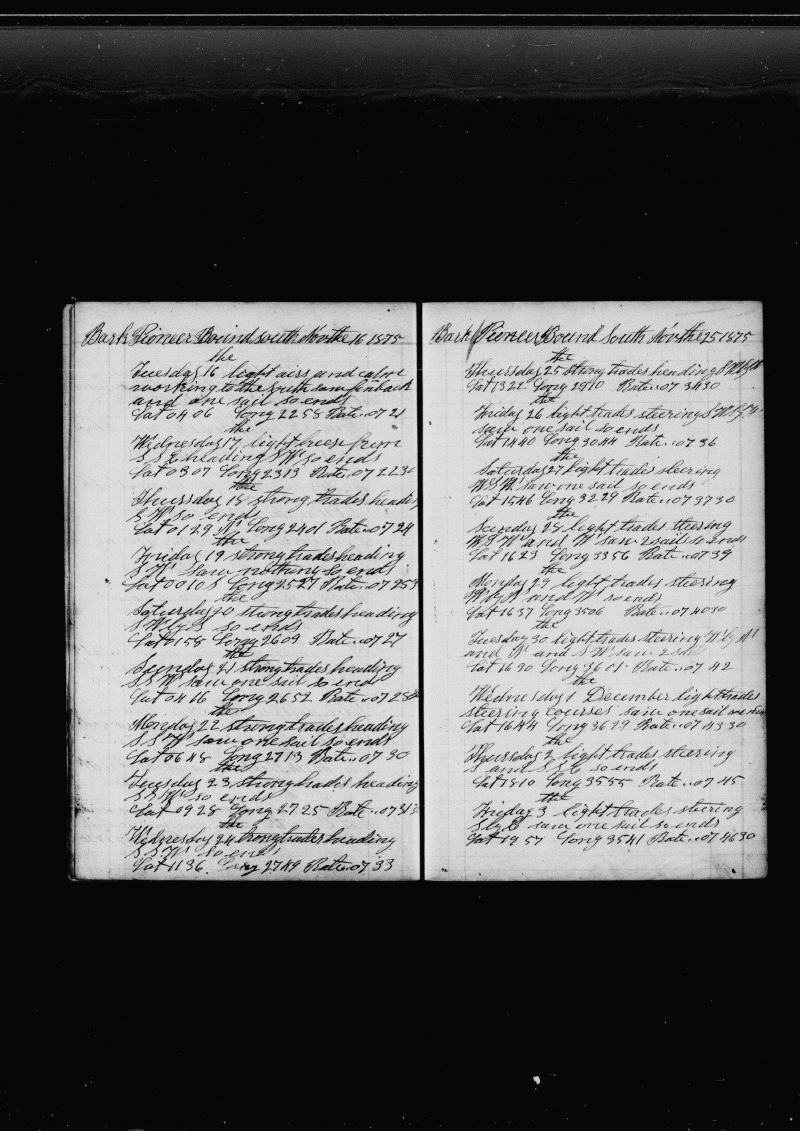 Bark Pioneer Bound south Nov the 16 1875
the
Tuesday 16 light airs and calm
working to the South saw finback
and one sail so ends
Lat 04 06 Long 22 58 Rate .. 07 21
the
Wednesday 17 light breese from
S S E heading S W so ends
Lat 03 07 Long 23 13 Rate .. 07 22 30
the
Thursday 18 strong trades heading
S W so ends
Lat 01 29 N Long 24 01 Rate .. 07 24
the
Friday 19 strong trades heading
S W saw nothing so ends
Lat 00 10 S Long 25 27 Rate .. 07 25 3
the
Saturday 20 strong trades heading
S W by S so ends
Lat 01 58 Long 26 09 Rate .. 07 27
the
Sunday 21 strong trades heading
S S W saw one sail so end
Lat 04 16 Long 26 52 Rate .. 07 28
the
Monday 22 strong trades heading
S S W saw one sail so ends
Lat 06 48 Long 27 13 Rate .. 07 30
the
Tuesday 23 strong trades heading
S S W so ends
Lat 09 28 Long 27 25 Rate .. 07 31
the
Wednesday 24 strong trades heading
S S W so end
Lat 11 36 Long 27 49 Rate .. 07 33
Bark Pioneer Bound South Nov the 25 1875
the
Thursday 25 strong trades heading S W by W
Lat 13 22 Long 29 10 Rate .. 07 34 30
the
Friday 26 light trades steering S W by W
saw one sail so ends
Lat 14 40 Long 30 44 Rate .. 07 36
the
Saturday 27 light trades steering
W S W saw one sail so ends
Lat 15 46 Long 32 29 Rate .. 07 37 30
the
Sunday 28 light trades steering
W S W and W saw 2 sail so ends
Lat 16 23 Long 33 56 Rate .. 07 39
the
Monday 29 light trades steering
W by N and W so ends
Lat 16 37 Long 35 06 Rate .. 07 40 30
the
Tuesday 30 light trades steering W by N
and W and S W saw 2 sail
Lat 16 30 Long 36 01 Rate .. 07 42
the
Wednesday 1 December light trades
steering courses saw one sail
Lat 16 44 Long 36 29 Rate .. 07 43 30
the
Thursday 2 light trades steering
S and S S E so ends
Lat 18 10 Long 35 55 Rate .. 07 45
the
Friday 3 light trades steering
S by E saw one sail so ends
Lat 19 57 Long 35 41 Rate .. 07 46 30